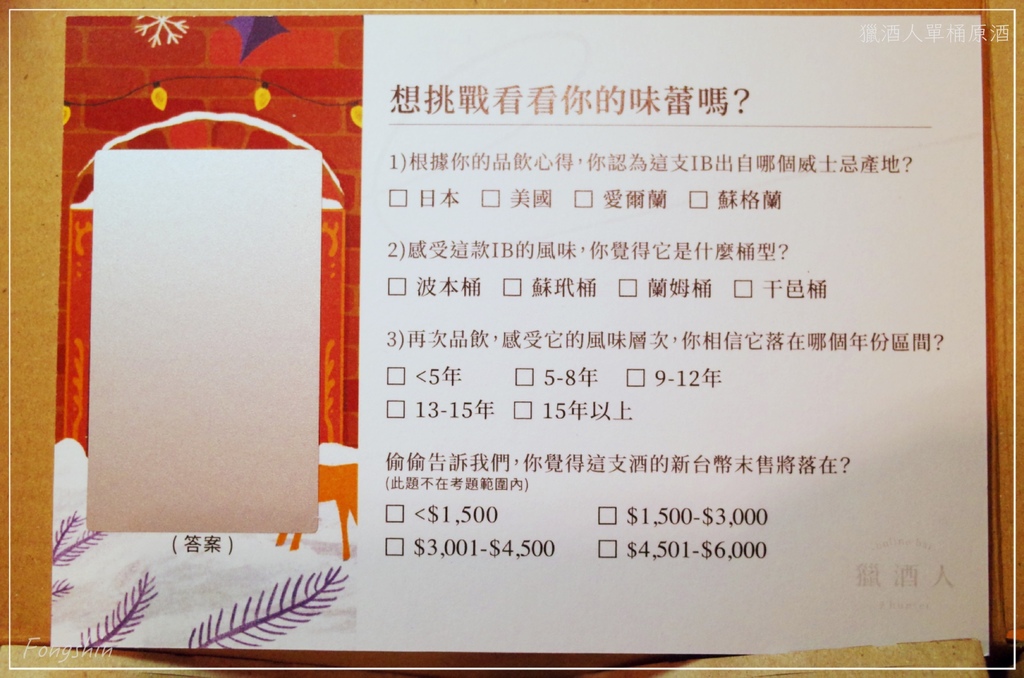 獵酒人單桶原酒
想挑戰看看你的味蕾嗎？
1)根據你的品飲心得，你認為這支IB出自哪個威士忌產地？
□ 日本 □ 美國 □ 愛爾蘭 □ 蘇格蘭
2)感受這款IB的風味，你覺得它是什麼桶型？
□ 波本桶 □ 蘇玳桶 □ 蘭姆桶 □ 干邑桶
3)再次品飲，感受它的風味層次，你相信它落在哪個年份區間？
□ <5年 □ 5-8年 □ 9-12年
□ 13-15年 □ 15年以上
偷偷告訴我們，你覺得這支酒的新台幣末售將落在？
(此題不在考題範圍內)
□ <$1,500 □ $1,500-$3,000
□ $3,001-$4,500 □ $4,501-$6,000
(答案)
獵酒人
Fongshin